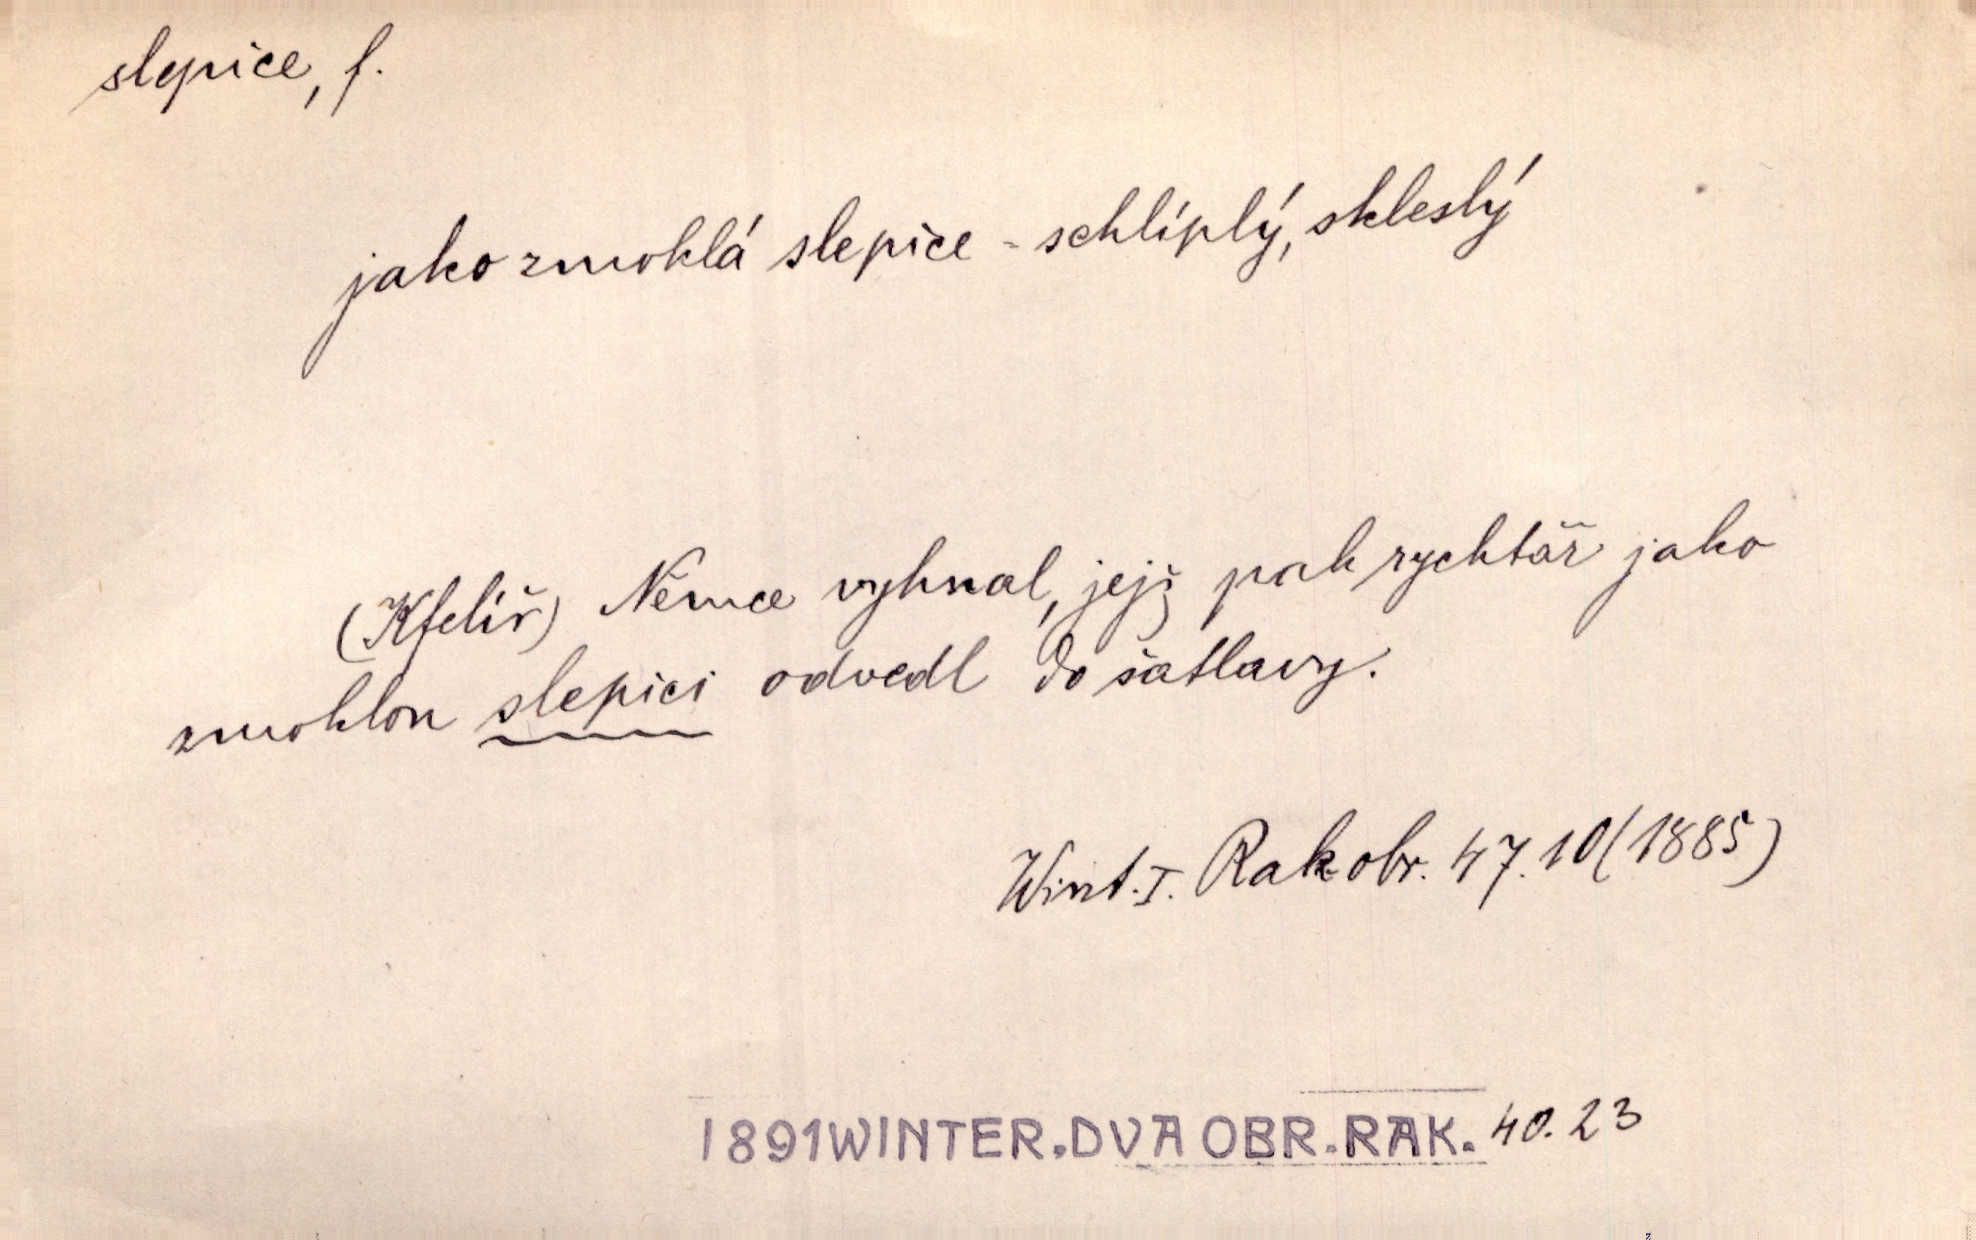 slepice, f.
jako zmoklá slepice - schlíplý, skleslý
(Kfelíř) Němce vyhnal, jejž pak rychtář jako
zmoklou slepici odvedl do šatlavy.
Wint. I. Rak obr. 47. 10 (1885)
1891 WINTER. DVA OBR. RAK. 40. 23